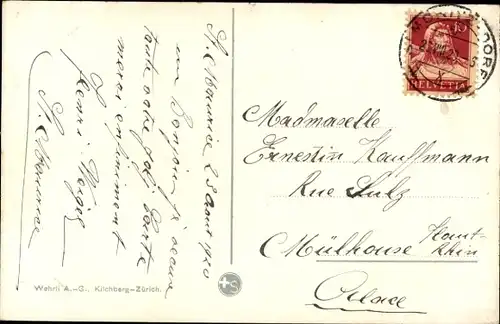 St. Maurice 25 Aout 1920
un Bonjour j'ai accus
toute votre joli Carte
merci infiniment
Henri Weigel
St. Maurice
Wehrli A.-G., Kilchberg-Zürich.
+S
10
HELVETIA
DORF
Madmaselle
Ernestin Kauffmann
Rue Sulz
Mülhouse Haut-
Rhin
Alsace